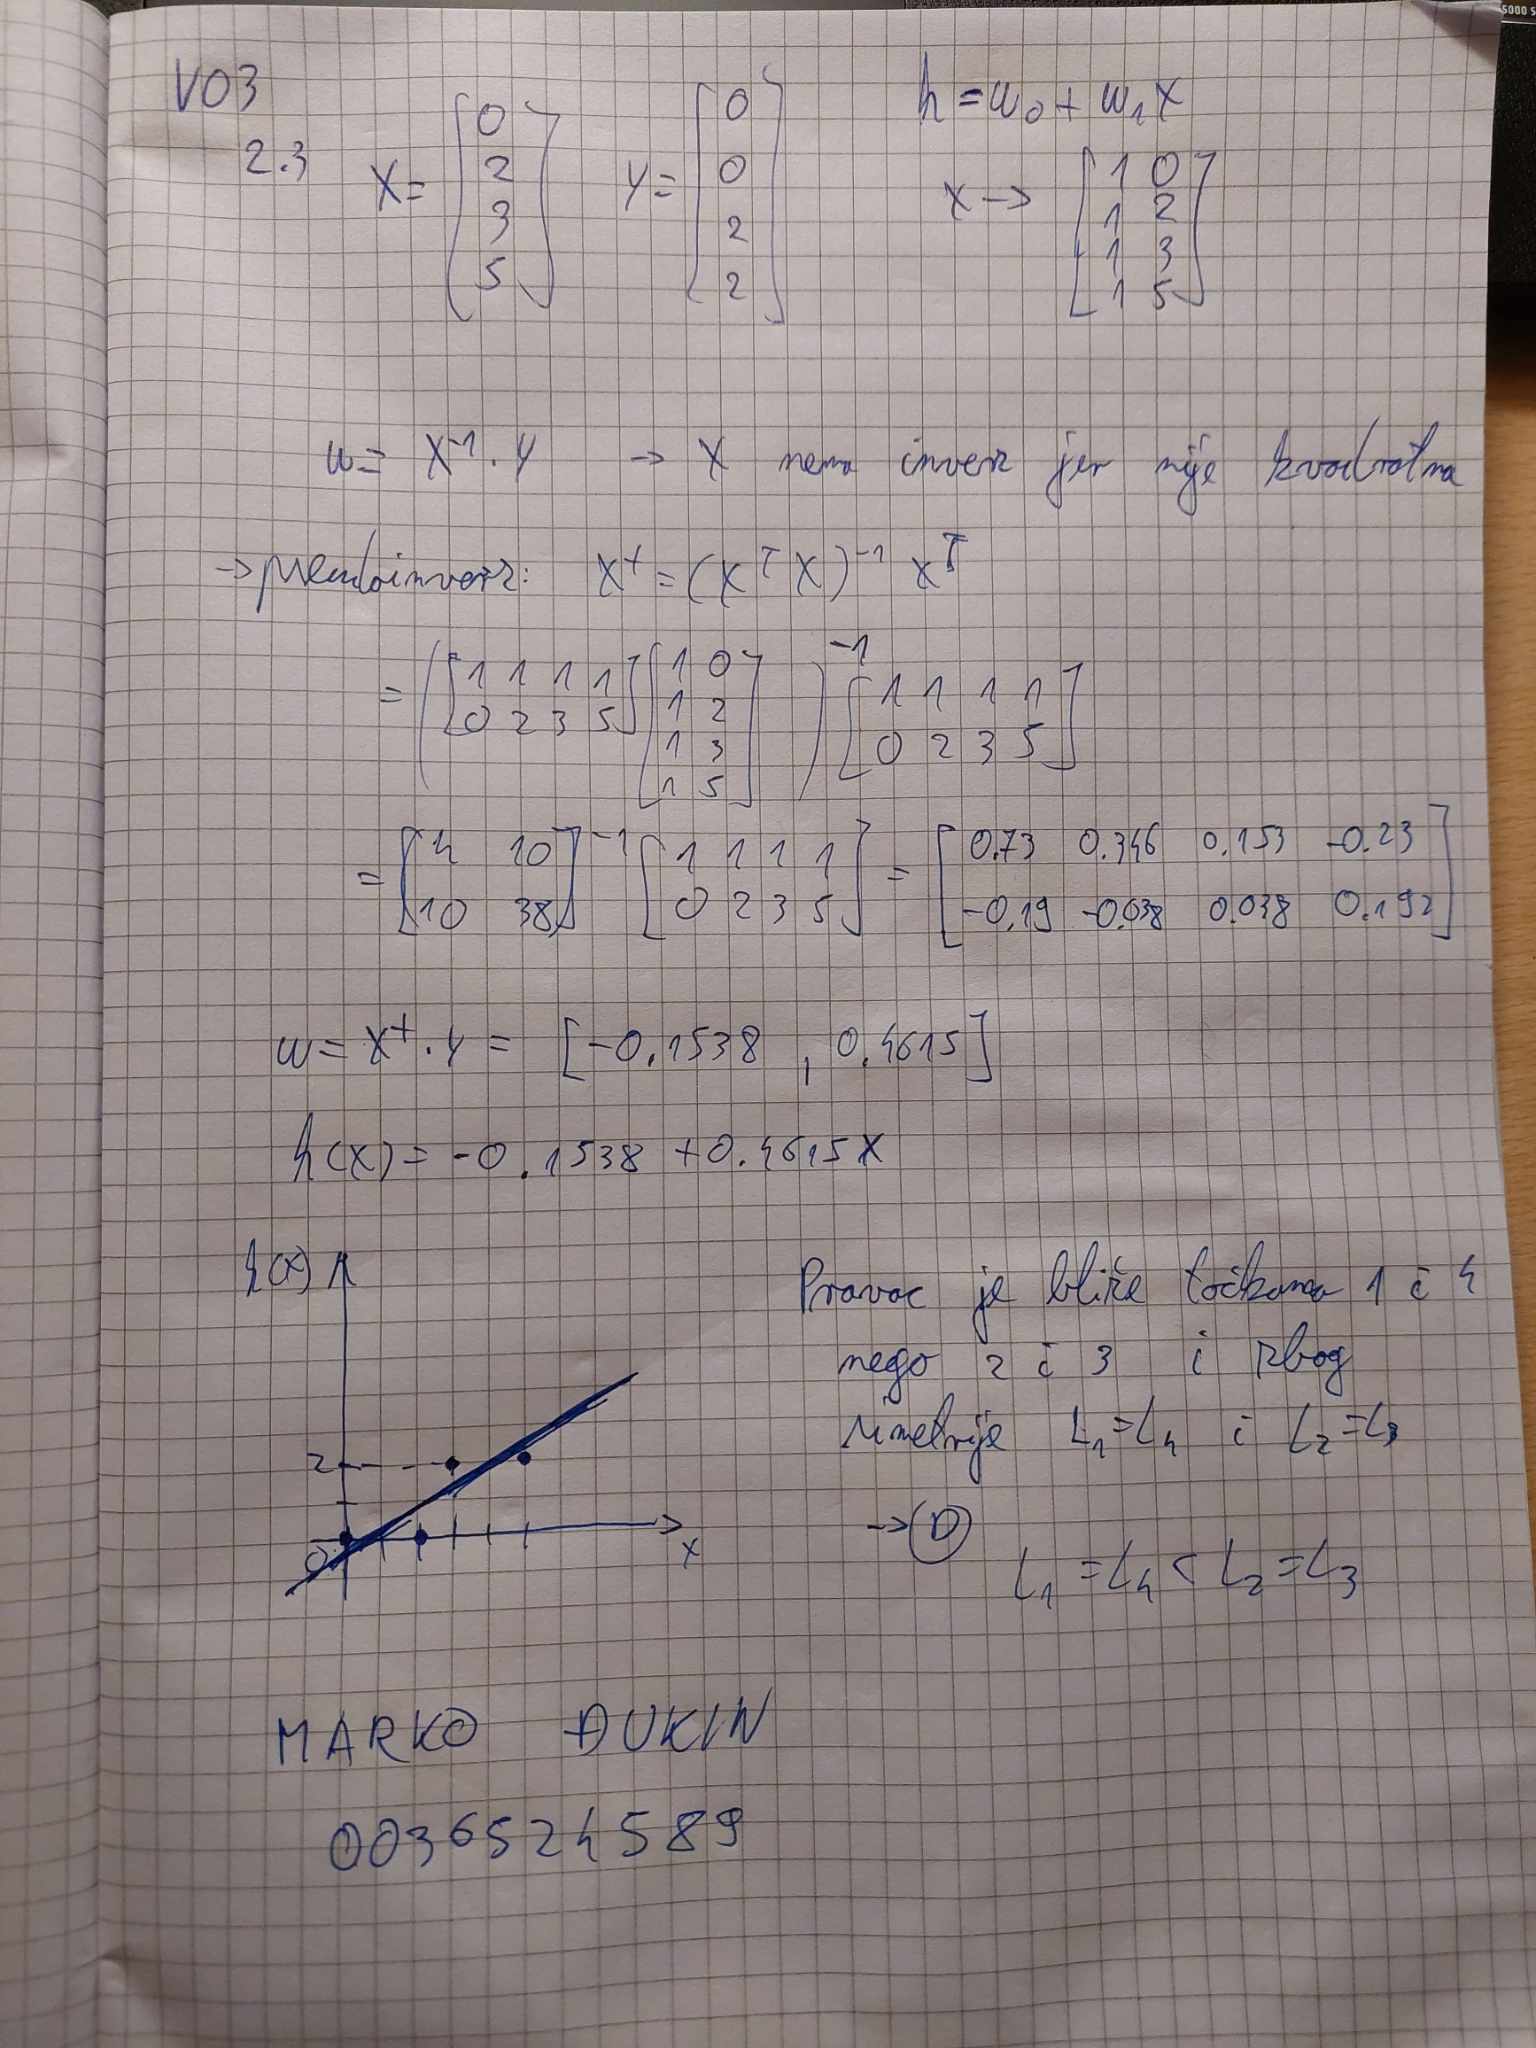 5000 S
V03
2.3
X = [0 2 3 5] y = [0 0 2 2] h = w₀ + w₁x
X → [1 0
1 2
1 3
1 5]
w = X⁻¹ · y → X nema inverz jer nije kvadratna
→ pseudoinverz: X⁺ = (XᵀX)⁻¹ Xᵀ
= ([1 1 1 1; 0 2 3 5] [1 0; 1 2; 1 3; 1 5])⁻¹ [1 1 1 1; 0 2 3 5]
= [4 10; 10 38]⁻¹ [1 1 1 1; 0 2 3 5] = [0.73 0.346 0.153 -0.23; -0.19 -0.038 0.038 0.192]
w = X⁺ · y = [-0.1538, 0.4615]
h(x) = -0.1538 + 0.4615x
h(x)
2
0
x
Pravac je bliže točkama 1 i 4
nego 2 i 3 i zbog
simetrije L₁=L₄ i L₂=L₃
→ D
L₁ = L₄ < L₂ = L₃
MARKO ĐUKIN
0036524589